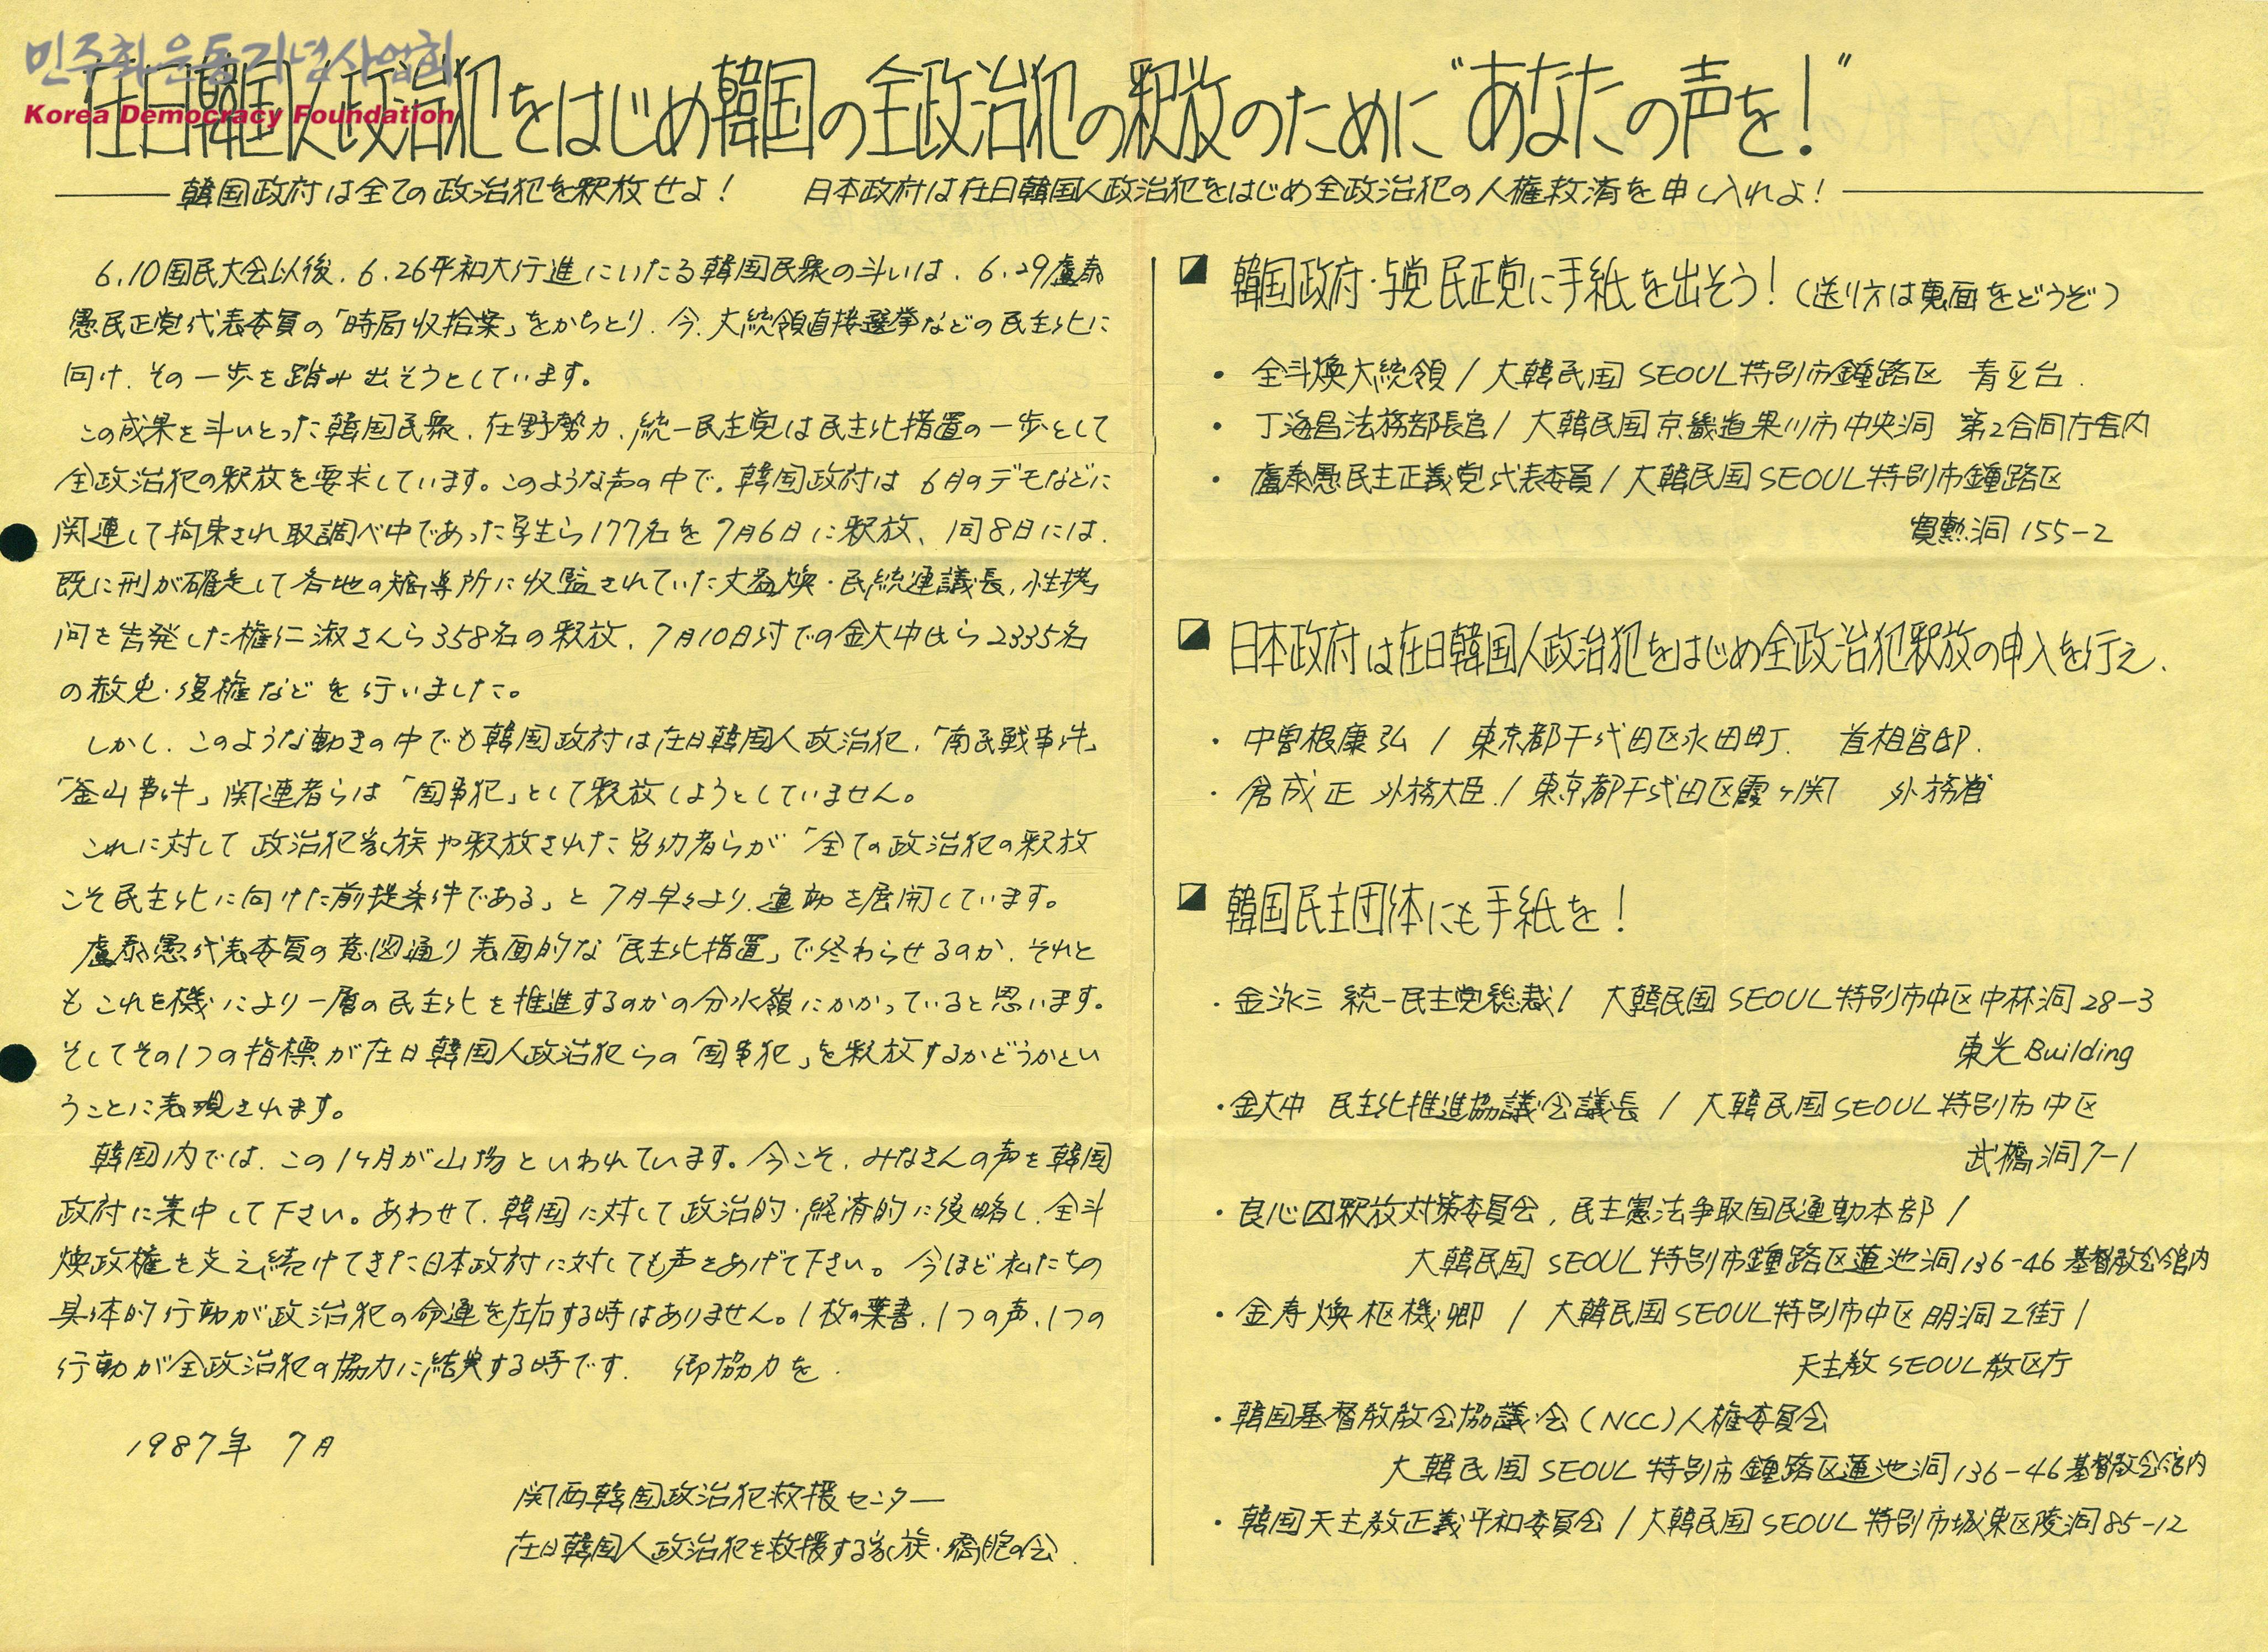 민주화운동기념사업회
Korea Democracy Foundation
在日韓国人政治犯をはじめ韓国の全政治犯の釈放のために“あなたの声を！”
韓国政府は全ての政治犯を釈放せよ！　日本政府は在日韓国人政治犯をはじめ全政治犯の人権救済を申し入れよ！
6.10国民大会以後、6.26平和大行進にいたる韓国民衆の斗いは、6.29盧泰
愚民正党代表委員の「時局収拾案」をかちとり、今、大統領直接選挙などの民主化に
向け、その一歩を踏み出そうとしています。
この成果を斗いとった韓国民衆、在野勢力、統一民主党は民主化措置の一歩として
全政治犯の釈放を要求しています。このような声の中で、韓国政府は 6月のデモなどに
関連して拘束され取調べ中であった学生ら177名を7月6日に釈放、同8日には、
既に刑が確定して各地の矯導所に収監されていた文益煥・民統連議長、性拷
問を告発した権仁淑さんら358名の釈放、7月10日付での金大中氏ら2335名
の赦免・復権などを行いました。
しかし、このような動きの中でも韓国政府は在日韓国人政治犯、「南民戦事件」
「釜山事件」関連者らは「国事犯」として釈放しようとしていません。
これに対して政治犯家族や釈放された労働者らが「全ての政治犯の釈放
こそ民主化に向けた前提条件である」と7月早々より、運動を展開しています。
盧泰愚代表委員の意図通り表面的な「民主化措置」で終わらせるのか、それと
もこれを機により一層の民主化を推進するのかの分水嶺にかかっていると思います。
そしてその1つの指標が在日韓国人政治犯らの「国事犯」を釈放するかどうかとい
うことに表現されます。
韓国内では、この1ヶ月が山場といわれています。今こそ、みなさんの声を韓国
政府に集中して下さい。あわせて、韓国に対して政治的・経済的に侵略し、全斗
煥政権を支え続けてきた日本政府に対しても声をあげて下さい。今ほど私たちの
具体的行動が政治犯の命運を左右する時はありません。1枚の葉書、1つの声、1つの
行動が全政治犯の協力に結実する時です。　御協力を．
1987年 7月
関西韓国政治犯救援センター
在日韓国人政治犯を救援する家族・僑胞の会．
韓国政府・与党民正党に手紙を出そう！（送り方は裏面をどうぞ）
・全斗煥大統領 / 大韓民国 SEOUL特別市鍾路区 青瓦台．
・丁海昌法務部長官 / 大韓民国京畿道果川市中央洞 第2合同庁舎内
・盧泰愚民主正義党代表委員 / 大韓民国SEOUL特別市鍾路区
寛勲洞 155-2
日本政府は在日韓国人政治犯をはじめ全政治犯釈放の申入を行え．
・中曽根康弘 / 東京都千代田区永田町．　首相官邸．
・倉成正 外務大臣 / 東京都千代田区霞ヶ関　外務省
韓国民主団体にも手紙を！
・金泳三 統一民主党総裁 / 大韓民国 SEOUL特別市中区中林洞 28-3
東光Building
・金大中 民主化推進協議会議長 / 大韓民国 SEOUL特別市中区
武橋洞 7-1
・良心囚釈放対策委員会，民主憲法争取国民運動本部 /
大韓民国 SEOUL特別市鍾路区蓮池洞136-46 基督教会館内
・金寿煥 枢機卿 / 大韓民国SEOUL特別市中区明洞2街1
天主教SEOUL教区庁
・韓国基督教教会協議会（NCC）人権委員会
大韓民国 SEOUL特別市鍾路区蓮池洞136-46基督教会館内
・韓国天主教正義平和委員会 / 大韓民国 SEOUL特別市城東区陵洞85-12